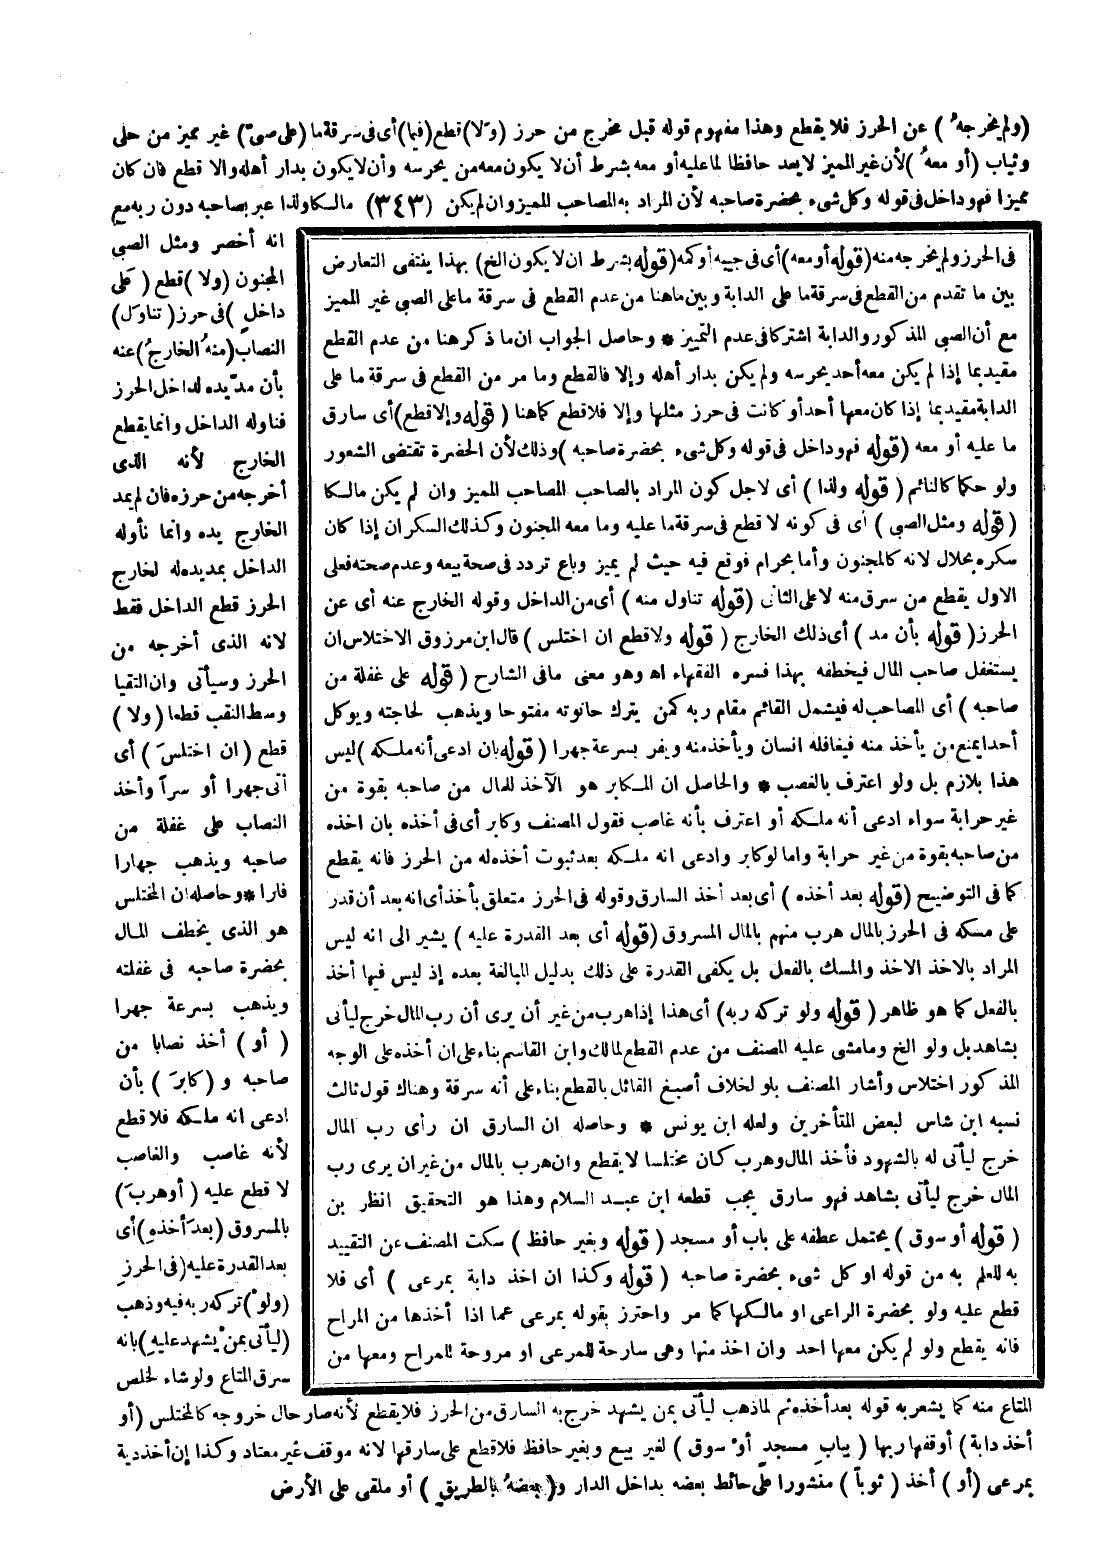 (ولم يخرجه) عن الحرز فلا يقطع وهذا مفهوم قوله قبل مخرج من حرز (ولا) قطع (فيما) أى فى سرقة ما (على صبىّ) غير مميز من حلى
وثياب (أو معه) لأن غير المميز لا يعد حافظا لما عليه أو معه بشرط أن لا يكون معه من يحرسه وأن لا يكون بدار أهله والا قطع فان كان
مميزا فهو داخل فى قوله وكل شىء بحضرة صاحبه لأن المراد به المصاحب المميز وان لم يكن (٣٤٣) مالكا ولذا عبر بصاحبه دون ربه مع
انه أخصر ومثل الصبى
المجنون (ولا) قطع (على
داخل) فى حرز (تناول)
النصاب (منه الخارج) عنه
بأن مد يده لداخل الحرز
فناوله الداخل وانما يقطع
الخارج لأنه الذى
أخرجه من حرزه فان لم يمد
الخارج يده وانما نأوله
الداخل بمديده له لخارج
الحرز قطع الداخل فقط
لانه الذى أخرجه من
الحرز وسيأتى وان التقيا
وسط النقب قطعا (ولا)
قطع (ان اختلس) أى
أتى جهرا أو سرا وأخذ
النصاب على غفلة من
صاحبه ويذهب جهارا
فارا * وحاصله ان المختلس
هو الذى يخطف المال
بحضرة صاحبه فى غفلته
ويذهب بسرعة جهرا
(أو) أخذ نصابا من
صاحبه و (كابر) بأن
ادعى انه ملكه فلا قطع
لأنه غاصب والغاصب
لا قطع عليه (أو هرب)
بالمسروق (بعد أخذه) أى
بعد القدرة عليه (فى الحرز
(ولو) تركه ربه فيه وذهب
(ليأتى بمن يشهد عليه) بانه
سرق المتاع ولو شاء لخلص
فى الحرز ولم يخرجه منه (قوله أو معه) أى فى جيبه أو كمه (قوله بشرط ان لا يكون الخ) بهذا ينتفى التعارض
بين ما تقدم من القطع فى سرقة ما على الدابة وبين ماهنا من عدم القطع فى سرقة ما على الصبى غير المميز
مع أن الصبى المذكور والدابة اشتركا فى عدم التمييز * وحاصل الجواب ان ما ذكر هنا من عدم القطع
مقيد بما إذا لم يكن معه أحد يحرسه ولم يكن بدار أهله وإلا فالقطع وما مر من القطع فى سرقة ما على
الدابة مقيد بما إذا كان معها أحد أو كانت فى حرز مثلها وإلا فلا قطع كما هنا (قوله وإلا قطع) أى سارق
ما عليه أو معه (قوله فهو داخل فى قوله وكل شىء بحضرة صاحبه) وذلك لأن الحضرة تقتضى الشعور
ولو حكما كالنائم (قوله ولذا) أى لاجل كون المراد بالصاحب المصاحب المميز وان لم يكن مالكا
(قوله ومثل الصبى) أى فى كونه لا قطع فى سرقة ما عليه وما معه المجنون وكذلك السكران إذا كان
سكره بحلال لانه كالمجنون وأما بحرام فوقع فيه حيث لم يميز وباع تردد فى صحة بيعه وعدم صحته فعلى
الاول يقطع من سرق منه لا على الثانى (قوله تناول منه) أى من الداخل وقوله الخارج عنه أى عن
الحرز (قوله بأن مد) أى ذلك الخارج (قوله ولا قطع ان اختلس) قال ابن مرزوق الاختلاس ان
يستغفل صاحب المال فيخطفه بهذا فسره الفقهاء اه وهو معنى مافى الشارح (قوله على غفلة من
صاحبه) أى المصاحب له فيشمل القائم مقام ربه كمن يترك حانوته مفتوحا ويذهب لحاجته ويوكل
أحدا يمنع من يأخذ منه فيغافله انسان ويأخذ منه ويفر بسرعة جهرا (قوله بان ادعى أنه ملكه) ليس
هذا بلازم بل ولو اعترف بالغصب * والحاصل ان المكابر هو الآخذ للمال من صاحبه بقوة من
غير حرابة سواء ادعى أنه ملكه أو اعترف بأنه غاصب فقول المصنف وكابر أى فى أخذه بان اخذه
من صاحبه بقوة من غير حرابة واما لو كابر وادعى انه ملكه بعد ثبوت أخذه له من الحرز فانه يقطع
كما فى التوضيح (قوله بعد أخذه) أى بعد أخذ السارق وقوله فى الحرز متعلق بأخذ أى انه بعد أن قدر
على مسكه فى الحرز بالمال هرب منهم بالمال المسروق (قوله أى بعد القدرة عليه) يشير الى انه ليس
المراد بالاخذ الاخذ والمسك بالفعل بل يكفى القدرة على ذلك بدليل المبالغة بعده إذ ليس فيها أخذ
بالفعل كما هو ظاهر (قوله ولو تركه ربه) أى هذا إذا هرب من غير أن يرى أن رب المال خرج ليأتى
بشاهد بل ولو الخ وما مشى عليه المصنف من عدم القطع لمالك وابن القاسم بناء على ان أخذه على الوجه
المذكور اختلاس وأشار المصنف بلو لخلاف أصبغ القائل بالقطع بناء على أنه سرقة وهناك قول ثالث
نسبه ابن شاس لبعض المتأخرين ولعله ابن يونس * وحاصله ان السارق ان رأى رب المال
خرج ليأتى له بالشهود فأخذ المال وهرب كان مختلسا لا يقطع وان هرب بالمال من غير ان يرى رب
المال خرج ليأتى بشاهد فهو سارق يجب قطعه ابن عبد السلام وهذا هو التحقيق انظر بن
(قوله أو سوق) يحتمل عطفه على باب أو مسجد (قوله وبغير حافظ) سكت المصنف عن التقييد
به للعلم به من قوله او كل شىء بحضرة صاحبه (قوله وكذا ان اخذ دابة بمرعى) أى فلا
قطع عليه ولو بحضرة الراعى او مالكها كما مر واحترز بقوله بمرعى عما اذا أخذها من المراح
فانه يقطع ولو لم يكن معها احد وان اخذ منها وهى سارحة للمرعى او مروحة للمراح ومعها من
المتاع منه كما يشعر به قوله بعد أخذه ثم لما ذهب ليأتى بمن يشهد خرج به السارق من الحرز فلا يقطع لأنه صار حال خروجه كالمختلس (أو
أخذ دابة) أوقفها ربها (بباب مسجد أو سوق) لغير بيع وبغير حافظ فلا قطع على سارقها لانه موقف غير معتاد وكذا إن أخذ دبة
بمرعى (أو) أخذ (ثوبا) منشورا على حائط بعضه بداخل الدار و(بعضه بالطريق) أو ملقى على الأرض